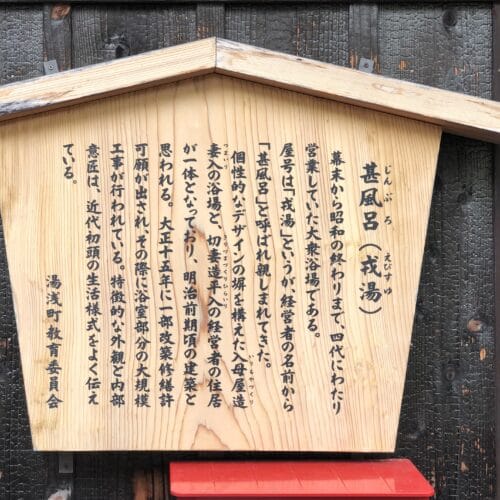 じんぶろ　えびすゆ
甚風呂（戎湯）
幕末から昭和の終わりまで、四代にわたり
営業していた大衆浴場である。
屋号は「戎湯」というが経営者の名前から
「甚風呂」と呼ばれ親しまれてきた。
いりもやづくり
個性的なデザインの塀を構えた入母屋造
つまいり　きりづまづくりひらいり
妻入の浴場と、切妻造平入の経営者の住居
が一体となっており、明治前期頃の建築と
思われる。大正十五年に一部改築修繕許
可願が出され、その際に浴室部分の大規模
工事が行われている。特徴的な外観と内部
意匠は、近代初頭の生活様式をよく伝え
ている。
湯浅町教育委員会